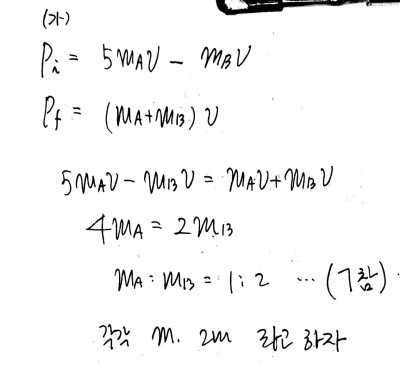 (가)
Pi = 5mAv - mBv
Pf = (mA+mB) v
5mAv - mBv = mAv+mBv
4mA = 2mB
mA : mB = 1 : 2 ... (ㄱ참)
각각 m. 2m 라고 하자